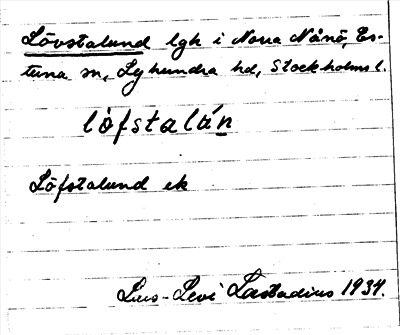 Lövstalund lgh i Norra Nånö, Es-
tuna sn, Lyhundra hd, Stockholms l.
lö̀fstalán
Löfstalund ek
Lars-Levi Læstadius 1934.